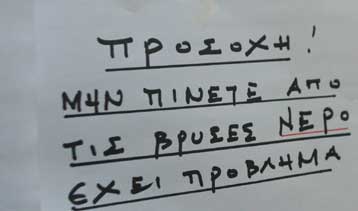 ΠΡΟΣΟΧΗ!
ΜΗΝ ΠΙΝΕΤΕ ΑΠΟ
ΤΙΣ ΒΡΥΣΕΣ ΝΕΡΟ
ΕΧΕΙ ΠΡΟΒΛΗΜΑ